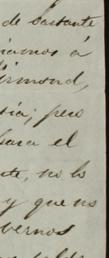 de bastante
iamos á
irmond,
sia; pero
para el
te, no lo
y que no
vernos